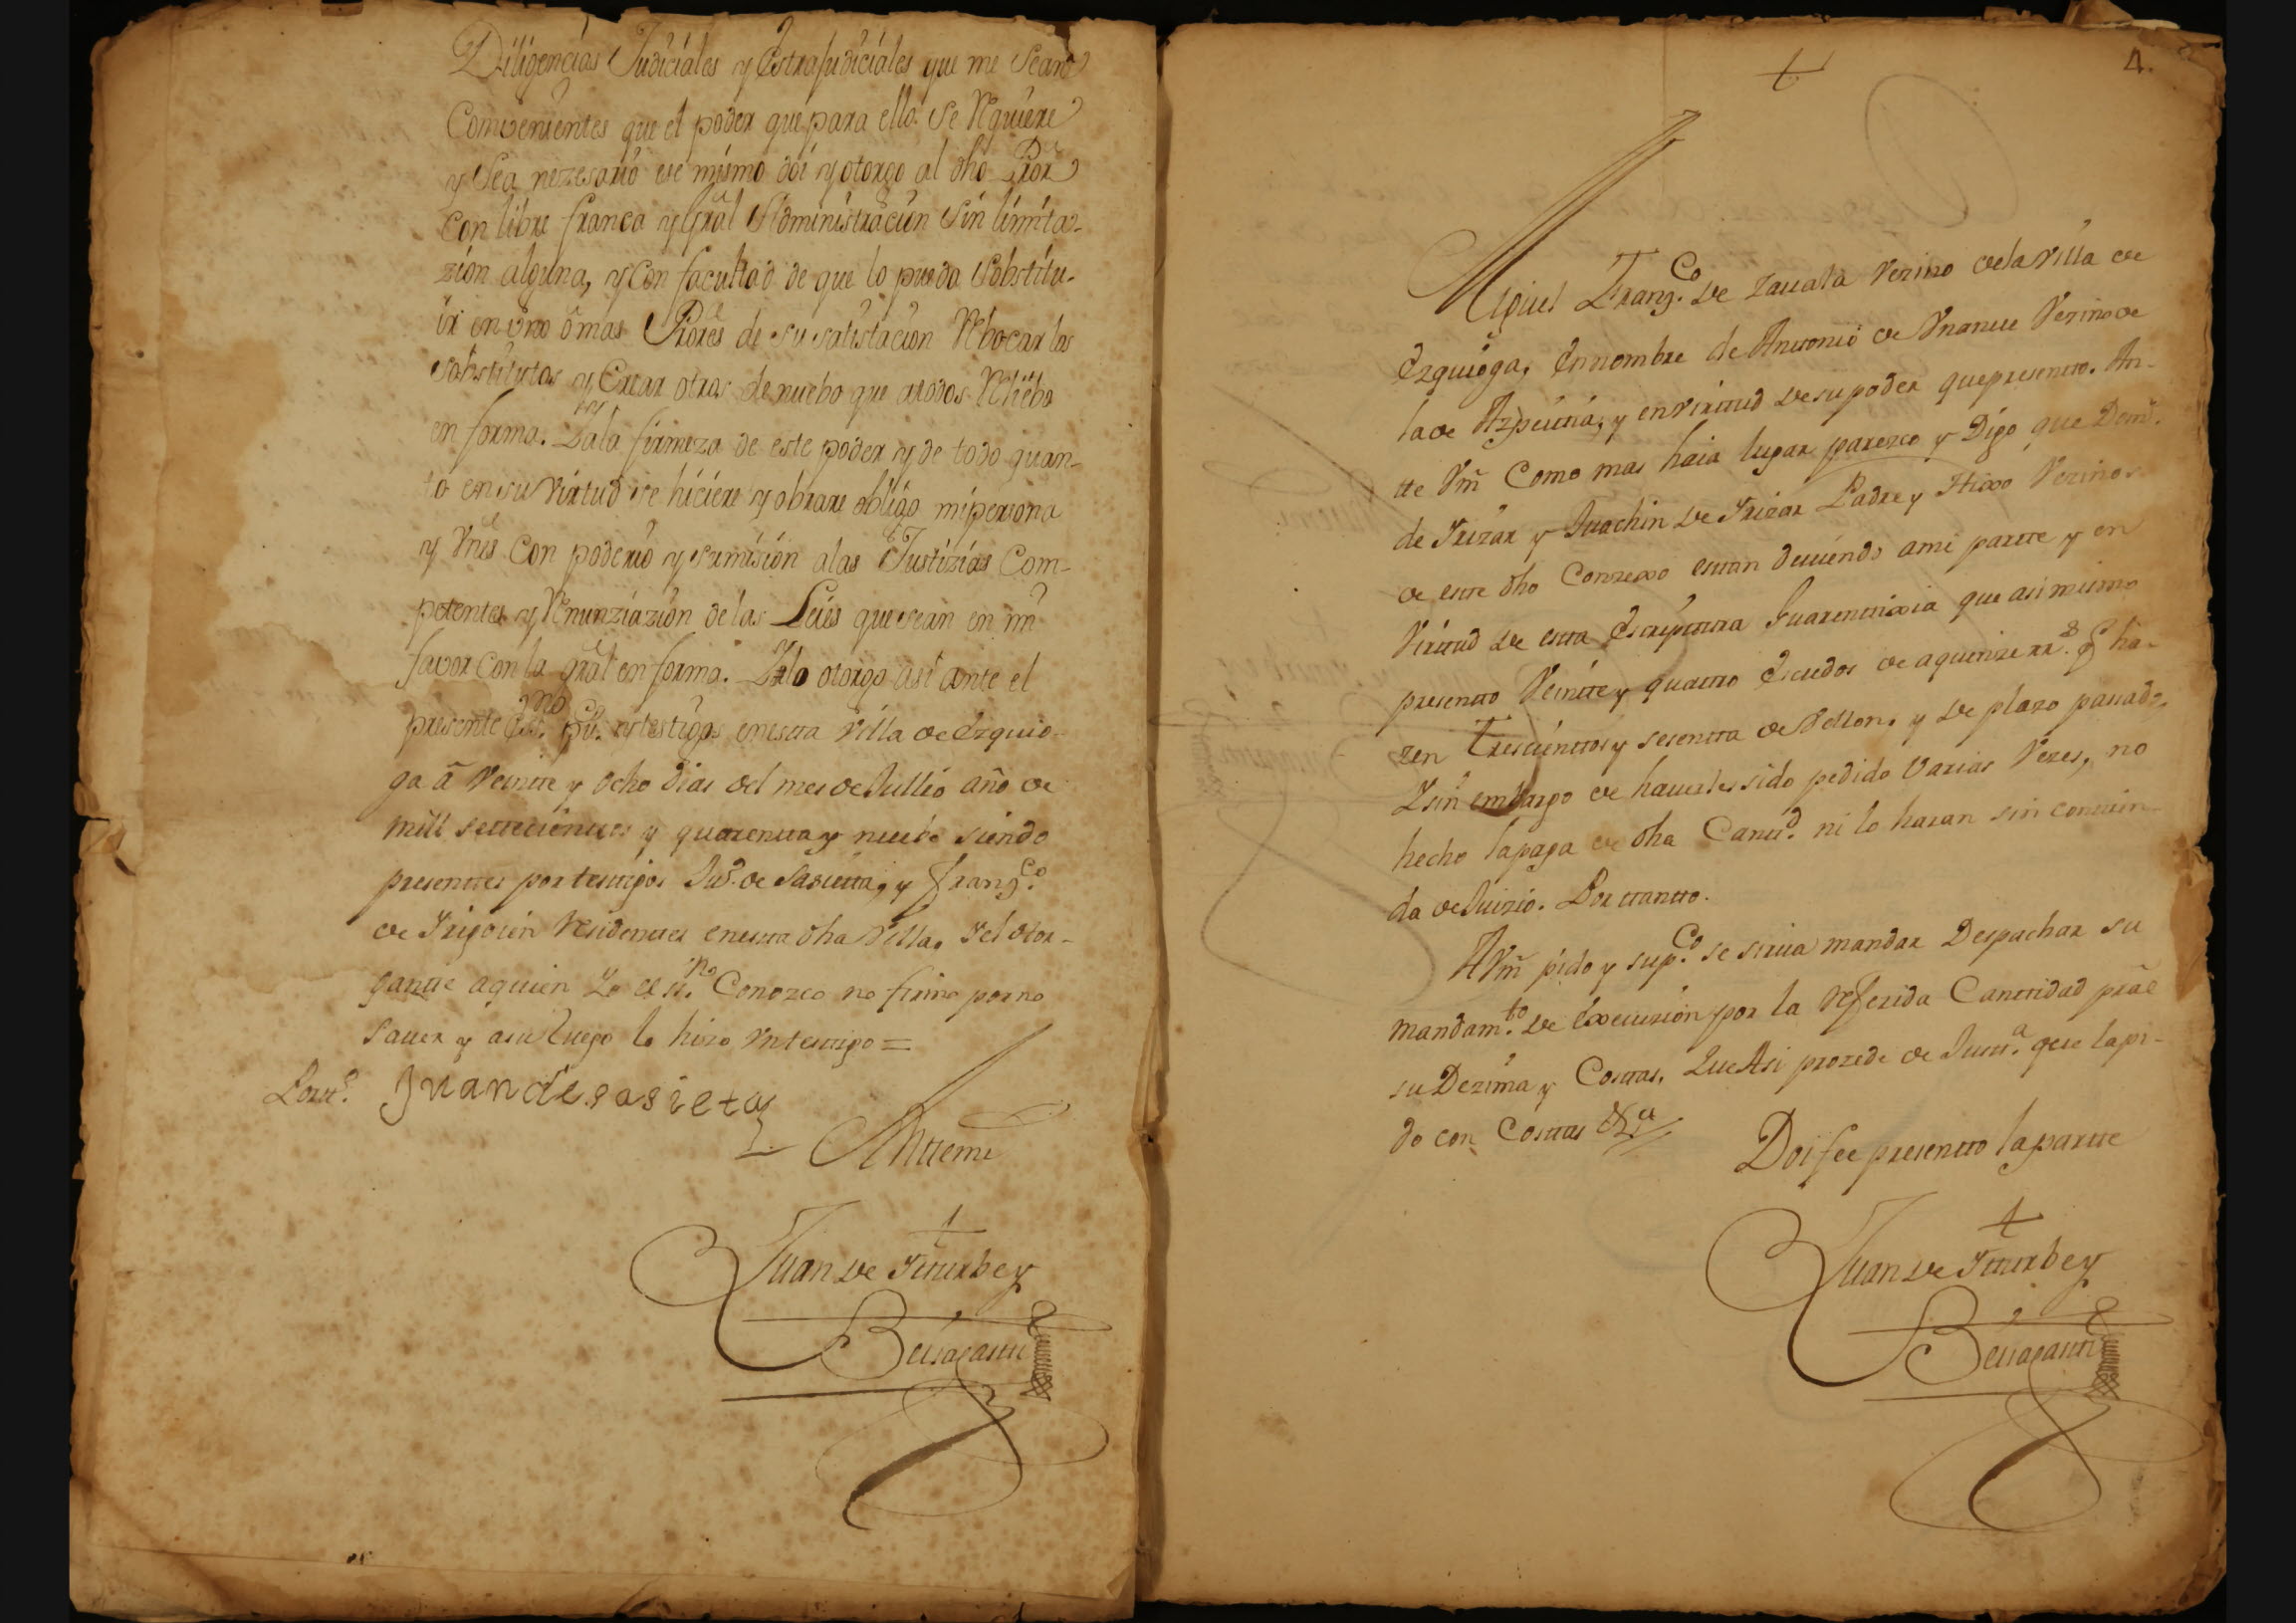 Diligencias Judiciales y Estrajudiciales que me sean
Combenientes que el poder que para ello se Rquiere
y sea nezesario ese mismo doi y otorgo al dho Pror
con libre franca y Gral Administracion sin limita-
zion alguna, y con facultad de que lo pueda sobstitu-
ir en uno ô mas Prores de su satisfacion Rbocar los
sobstitutos y Crear otros de nuebo que atodos Rliebo
en forma. Y a la firmeza de este poder y de todo quan-
to en su virtud se hiciere y obrare obligo mi persona
y Vnes con poderio y sumision a las Justizias Com-
petentes y Rnunziazion de las Leies que sean en mi
favor con la gral en forma. Y lo otorgo asi ante el
presente Essno. pco. y testigos en esta Villa de Ezquio-
ga â Veintte y ocho dias del mes de Jullio año de
mill settecienttos y quarentta y nuebe siendo
presenttes por testtigos Jun. de Sasietta, y Frangco.
de Irigoien Residenttes en estta dha Villa, Y el otor-
gantte a quien Yo el ssno. Conozco no firmo por no
saver y a su Ruego lo hizo Vn testtigo =
Juan de sasieta
Anttemi
Juan de Itturbe y
Beisagastti
4.
Miguel Frangco. de Zavala Vezino de la Villa de
Ezquioga, En nombre de Anttonio de Vnanue Vezino de
la de Azpeitia, y en virttud de su poder que presentto. An-
tte Vm Como mas haia lugar parezco y Digo que Domo.
de Irizar y Juachin de Irizar Padre y Hixo Vezinos
de estte dho Conzexo esttan deviendo a mi partte y en
Virttud de estta Escripttura Guarenttixia que asi mismo
presentto Veintte y quattro Escudos de a quinze rrs. q ha-
zen Trescienttos y sesentta de Vellon, y de plazo pasado,
Y sin embargo de haverles sido pedido Varias Vezes, no
hecho la paga de dha Canttd. ni lo haran sin conttien-
da de Juizio. Por ttantto.
A Vm pido y supco. se sirva mandar Despachar su
mandamto. de Execuzion por la Referida Canttidad pral
su Dezima y Costtas, Que Asi prozede de Justta. que la pi-
do con Costtas &a
Doi fee presentto la partte
Juan de Itturbe y
Beisagastti